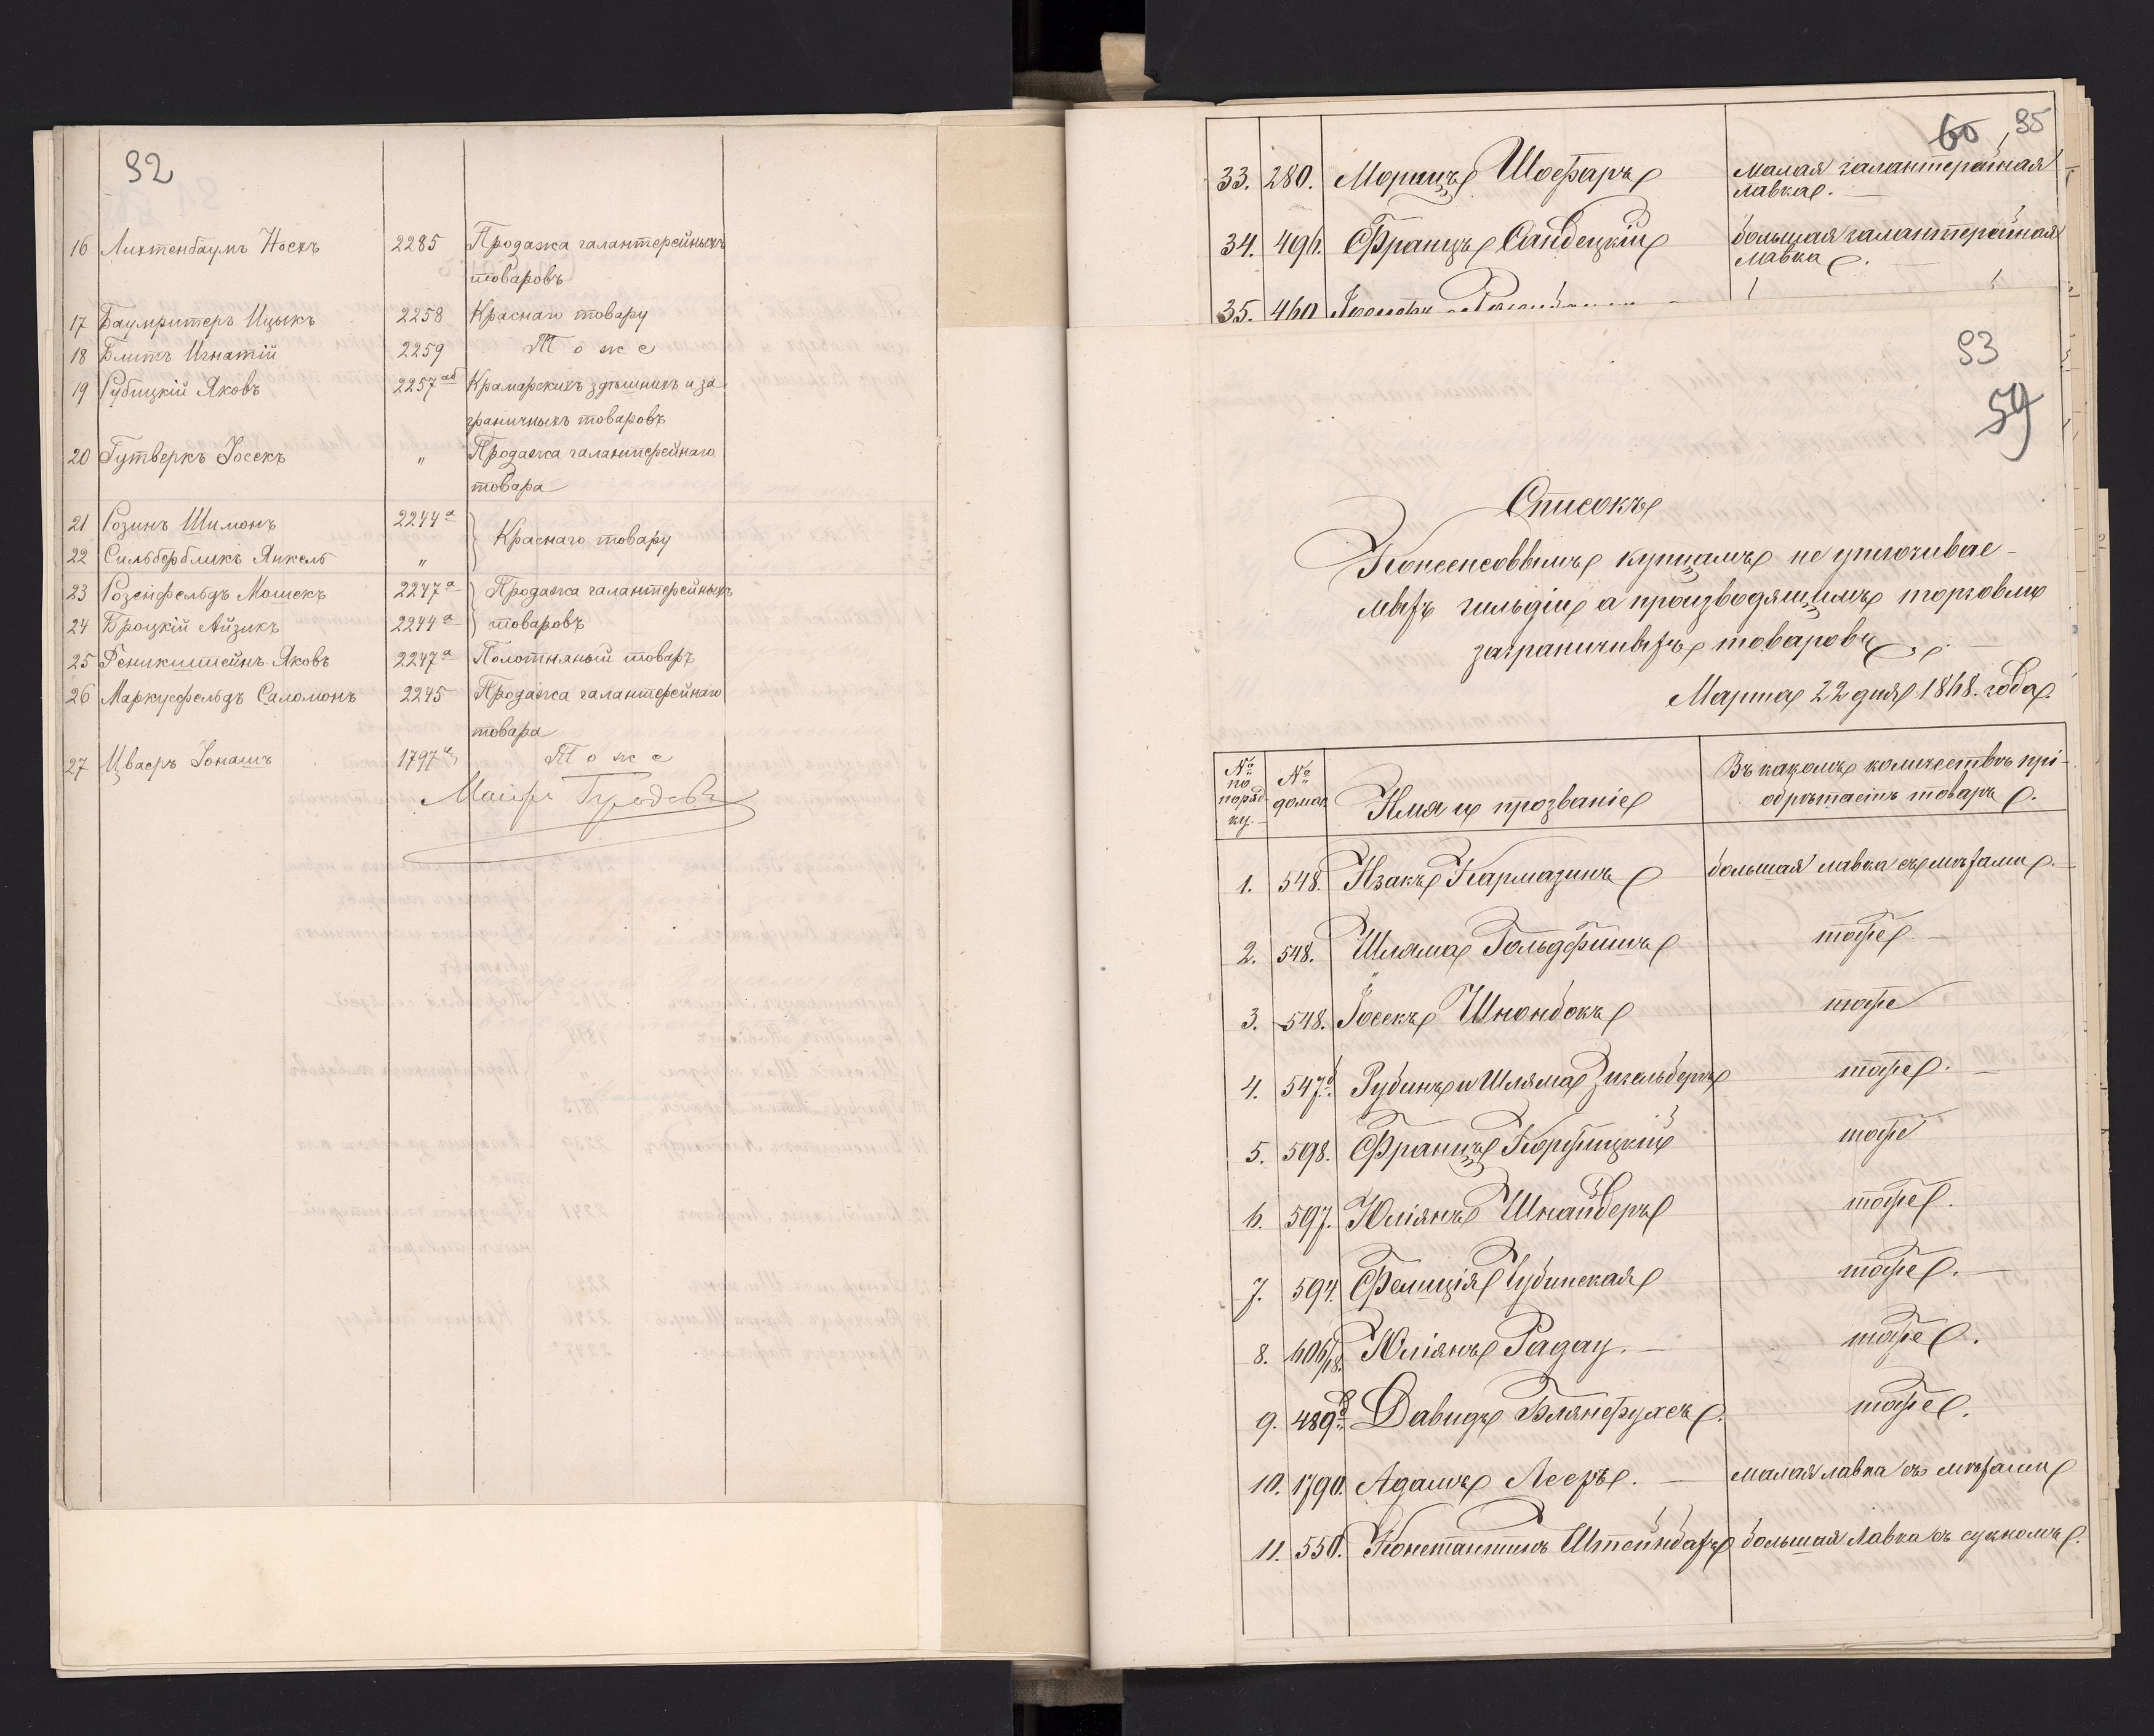 92
16 Лихтенбаумъ Носкъ 2285 Продажа галантерейныхъ
товаровъ
17 Баумриттеръ Ицыкъ 2258 Краснаго товару
18 Блитъ Игнатій 2259 Тоже
19 Рубицкій Яковъ 2257 аб Крамарскихъ здѣшнихъ и за
граничныхъ товаровъ
20 Гутверкъ Іосекъ " Продажа галантерейнаго
товара
21 Розинъ Шимонъ 2244 а
Краснаго товару
22 Сильбербликъ Янкель "
23 Розенфельдъ Мошекъ 2247 а Продажа галантерейныхъ
24 Броцкій Айзикъ 2244 а товаровъ
25 Феникштейнъ Яковъ 2247 а Полотняный товаръ
26 Маркусфельдъ Саломонъ 2245 Продажа галантерейнаго
товара
27 Цваеръ Іонашъ 1797 Тоже
Маіоръ
60 95
33. 280. Морицъ Шофаръ малая галантерейная
лавка.
34. 496. Францъ Сандецкій большая галантерейная
лавка.
35. 460
93
59
Списокъ
Консенсовымъ купцамъ не уплочивае-
мыхъ гильдіи а производящимъ торговлю
заграничныхъ товаровъ.
Марта 22 дня 1868. года.
№ по порядку. № дома Имя и прозваніе Въ какомъ количествѣ прі-
обрѣтаетъ товаръ.
1. 548. Изакъ Кармазинъ большая лавка съ мѣхами.
2. 548. Шляма Гольдфишъ тоже.
3. 548. Іосекъ Шнонбокъ тоже
4. 547 Рубинъ и Шляма Зигельбергъ тоже.
5. 598. Францъ Коржицкій тоже
6. 597. Юліянъ Шнайдеръ тоже.
7. 594. Фелиція Чубинская тоже.
8. 606/18. Юліянъ Радау. тоже.
9. 489 Давидъ Блянфуксъ. тоже.
10. 1790. Адамъ Лесръ. малая лавка съ мѣхами
11. 550. Константинъ Штейнбахъ большая лавка съ сукномъ.